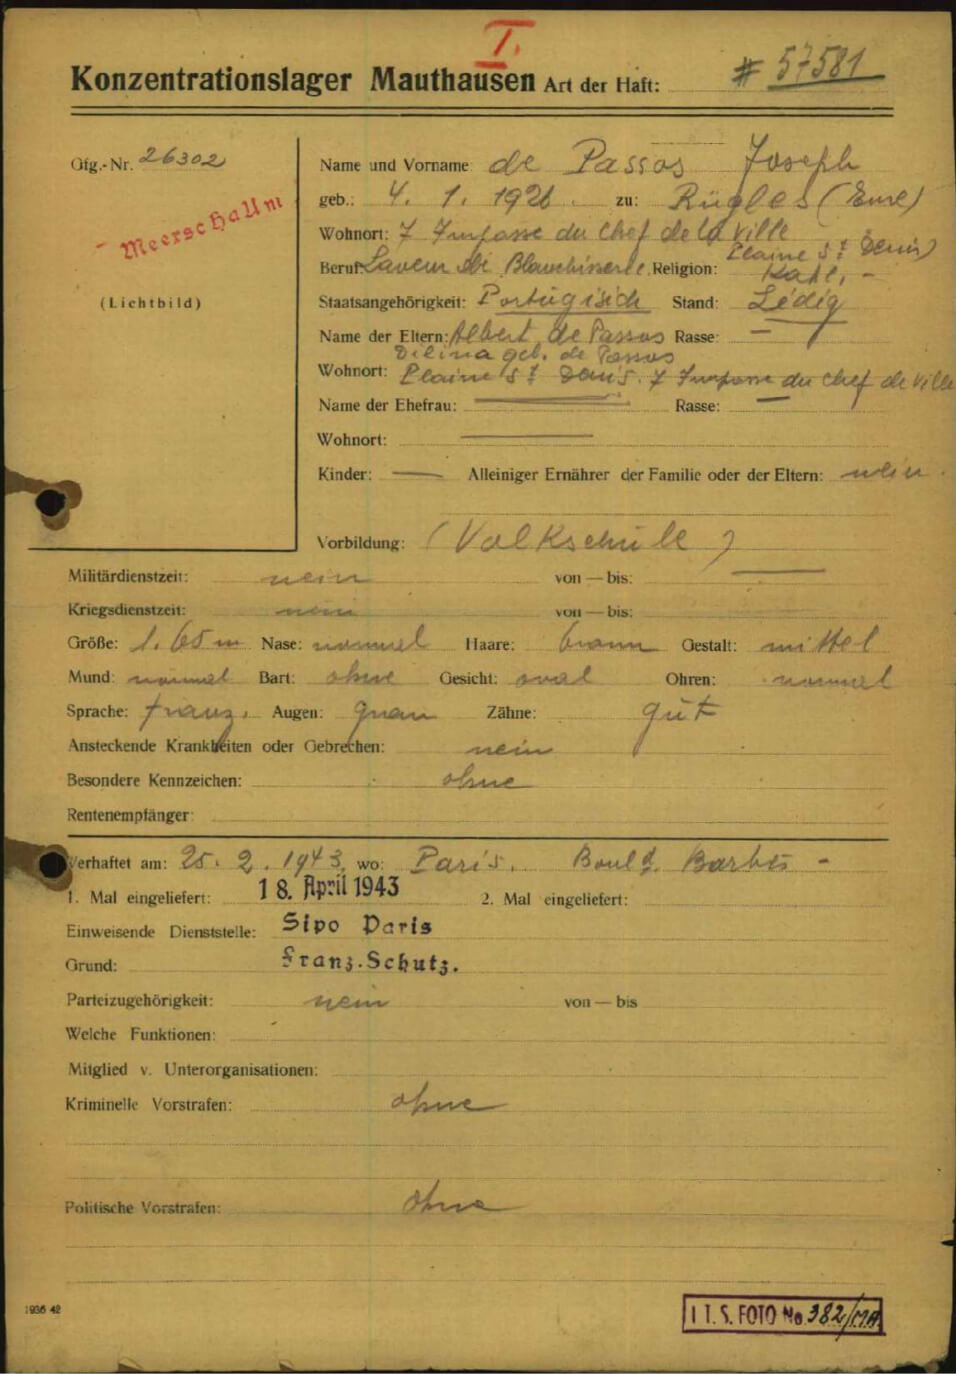 I.
Konzentrationslager Mauthausen Art der Haft: # 57581
Gfg.-Nr. 26302
Meerschaum
(Lichtbild)
Name und Vorname: de Passos Joseph
geb.: 4. 1. 1926. zu: Rügles (Eure)
Wohnort: 7 Impasse du Chef de la Ville
Plaine St Denis)
Beruf: Laveur Blanchisserie. Religion: Kath. -
Staatsangehörigkeit: Portugisich Stand: Ledig
Name der Eltern: Albert de Passos Rasse: —
Dilina geb. de Passos
Wohnort: Plaine St Denis. 7 Impasse du Chef de Ville
Name der Ehefrau: — Rasse: —
Wohnort: —
Kinder: — Alleiniger Ernährer der Familie oder der Eltern: nein.
Vorbildung: (Valkschule)
Militärdienstzeit: nein von — bis: —
Kriegsdienstzeit: nein von — bis:
Größe: 1.65 m Nase: normal Haare: braun Gestalt: mittel
Mund: normal Bart: ohne Gesicht: oval Ohren: normal
Sprache: franz. Augen: grau Zähne: gut
Ansteckende Krankheiten oder Gebrechen: nein
Besondere Kennzeichen: ohne
Rentenempfänger:
Verhaftet am: 25. 2. 1943. wo: Paris. Boul d. Barbes -
1. Mal eingeliefert: 18. April 1943 2. Mal eingeliefert:
Einweisende Dienststelle: Sipo Paris
Grund: Franz.Schutz.
Parteizugehörigkeit: nein von — bis
Welche Funktionen:
Mitglied v. Unterorganisationen:
Kriminelle Vorstrafen: ohne
Politische Vorstrafen: ohne
1936 42
I.T.S. FOTO No 382/MA.